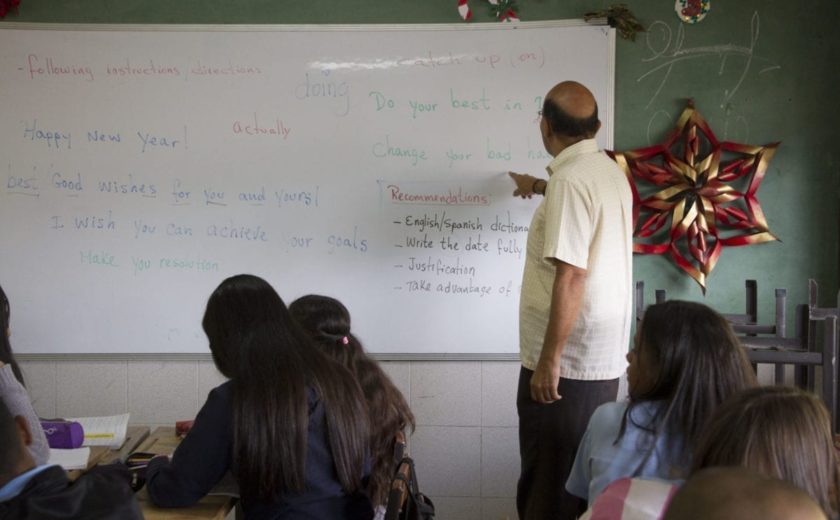 - Following instructions/directions
Happy New Year!
best Good wishes for you and yours!
I wish you can achieve your goals
Make you resolution
actually
doing
catch up (on)
Do your best in
Change your bad
Recommendations:
- English/Spanish
- Write the date fully
- Justification
- Take advantage of